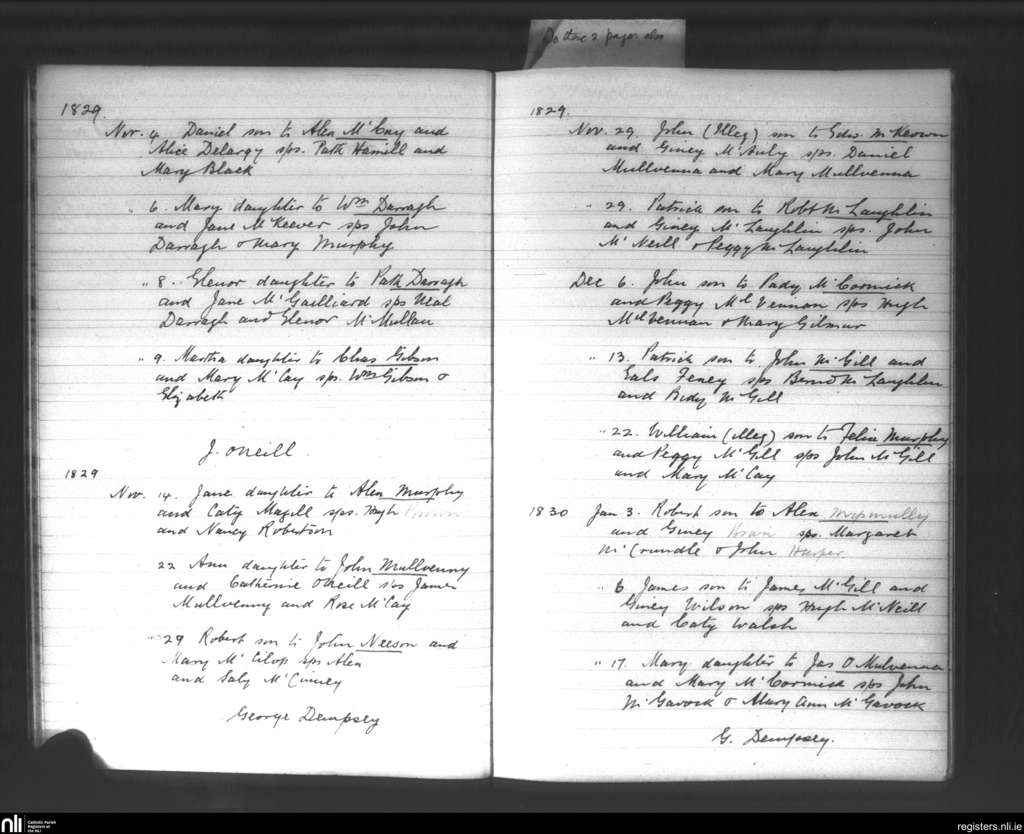 Do these 2 pages also
1829.
Nov. 4. Daniel son to Alex McCay and
Alice Delargy sps. Patk Hamill and
Mary Black
" 6. Mary daughter to Wm Darragh
and Jane McKeever sps John
Darragh & Mary Murphy
" 8. Elenor daughter to Patk Darragh
and Jane McGailliard sps Neal
Darragh and Elenor McMullan
" 9. Martha daughter to Chas Gibson
and Mary McCay sps. Wm Gibson &
Elizabeth
J. O'Neill.
1829
Nov. 14. Jane daughter to Alex Murphy
and Caty Magill sps. Hugh
and Nancy Robertson
22 Ann daughter to John Mullvenny
and Catherine O'Neill sps James
Mullvenny and Rose McCay
" 29 Robert son to John Neeson and
Mary sps Alex
and Saly McCinney
George Dempsey
1829.
Nov. 29. John (Illeg) son to Edw. McKeown
and Giney McAuly sps. Daniel
Mullvenna and Mary Mullvenna
" 29. Patrick son to Robt McLaughlin
and Giney McLaughlin sps. John
McNeill & Peggy McLaughlin
Dec 6. John son to Pady McCormick
and Peggy McVennan sps Hugh
McVennan & Mary Gilmur
" 13. Patrick son to John McGill and
Feney sps Bernd McLaughlin
and Bidy McGill
" 22. William (illeg) son to Felix Murphy
and Peggy McGill sps John McGill
and Mary McCay
1830 Jan 3. Robert son to Alex
and Giney sps. Margaret
McCrundle & John Harper
" 6 James son to James McGill and
Giney Wilson sps Hugh McNeill
and Caty Walsh
" 17. Mary daughter to Jas O Mulvenna
and Mary McCormick sps John
McGavock & Mary Ann McGavock
G. Dempsey.
nli
Catholic Parish
Registers at
the NLI
registers.nli.ie